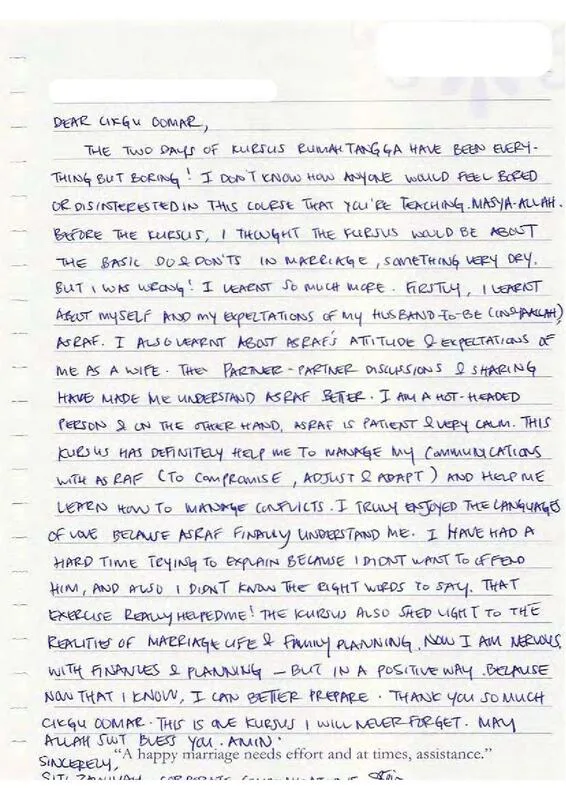 DEAR CIKGU OOMAR,
THE TWO DAYS OF KURSUS RUMAHTANGGA HAVE BEEN EVERY-
THING BUT BORING! I DON'T KNOW HOW ANYONE WOULD FEEL BORED
OR DISINTERESTED IN THIS COURSE THAT YOU'RE TEACHING. MASYA-ALLAH.
BEFORE THE KURSUS, I THOUGHT THE KURSUS WOULD BE ABOUT
THE BASIC DO & DON'TS IN MARRIAGE, SOMETHING VERY DRY.
BUT I WAS WRONG! I LEARNT SO MUCH MORE. FIRSTLY, I LEARNT
ABOUT MYSELF AND MY EXPECTATIONS OF MY HUSBAND-TO-BE (INSYAALLAH)
ASRAF. I ALSO LEARNT ABOUT ASRAF'S ATTITUDE & EXPECTATIONS OF
ME AS A WIFE. THE PARTNER-PARTNER DISCUSSIONS & SHARING
HAVE MADE ME UNDERSTAND ASRAF BETTER. I AM A HOT-HEADED
PERSON & ON THE OTHER HAND, ASRAF IS PATIENT & VERY CALM. THIS
KURSUS HAS DEFINITELY HELP ME TO MANAGE MY COMMUNICATIONS
WITH ASRAF (TO COMPROMISE, ADJUST & ADAPT) AND HELP ME
LEARN HOW TO MANAGE CONFLICTS. I TRULY ENJOYED THE LANGUAGES
OF LOVE BECAUSE ASRAF FINALLY UNDERSTAND ME. I HAVE HAD A
HARD TIME TRYING TO EXPLAIN BECAUSE I DIDNT WANT TO OFFEND
HIM, AND ALSO I DIDN'T KNOW THE RIGHT WORDS TO SAY. THAT
EXERCISE REALLY HELPED ME! THE KURSUS ALSO SHED LIGHT TO THE
REALITIES OF MARRIAGE LIFE & FAMILY PLANNING. NOW I AM NERVOUS
WITH FINANCES & PLANNING – BUT IN A POSITIVE WAY. BECAUSE
NOW THAT I KNOW, I CAN BETTER PREPARE. THANK YOU SO MUCH
CIKGU OOMAR. THIS IS ONE KURSUS I WILL NEVER FORGET. MAY
ALLAH SWT BLESS YOU. AMIN.
"A happy marriage needs effort and at times, assistance."
SINCERELY,
SITI